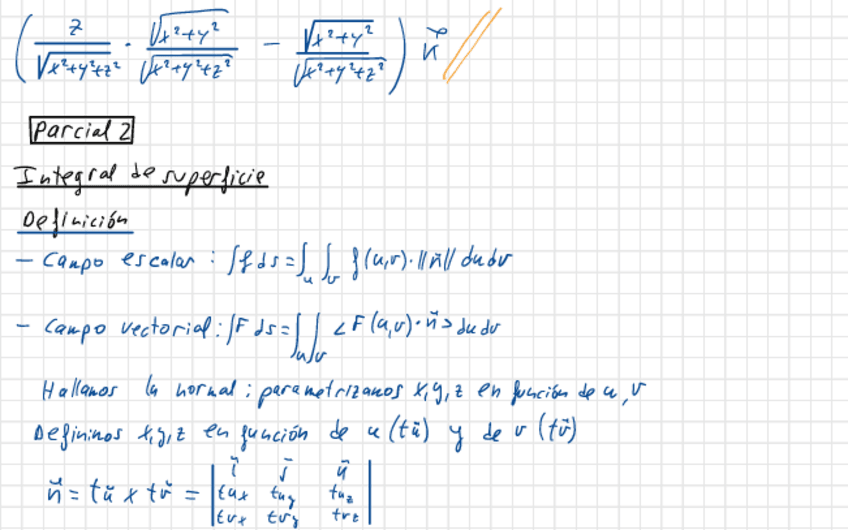 ( z/√x²+y²+z² · √x²+y²/√x²+y²+z² − √x²+y²/√x²+y²+z² ) k⃗
Parcial 2
Integral de superficie
Definición
– Campo escalar : ∫f ds = ∫u ∫v f(u,v)·||n⃗|| du dv
– Campo vectorial : ∫F ds = ∫u ∫v <F(u,v)·n⃗> du dv
Hallamos la normal ; parametrizamos x,y,z en función de u,v
Definimos x,y,z en función de u (tu⃗) y de v (tv⃗)
n⃗ = tu⃗ x tv⃗ = | i⃗ j⃗ k⃗ |
| tux tuy tuz |
| tvx tvy tvz |